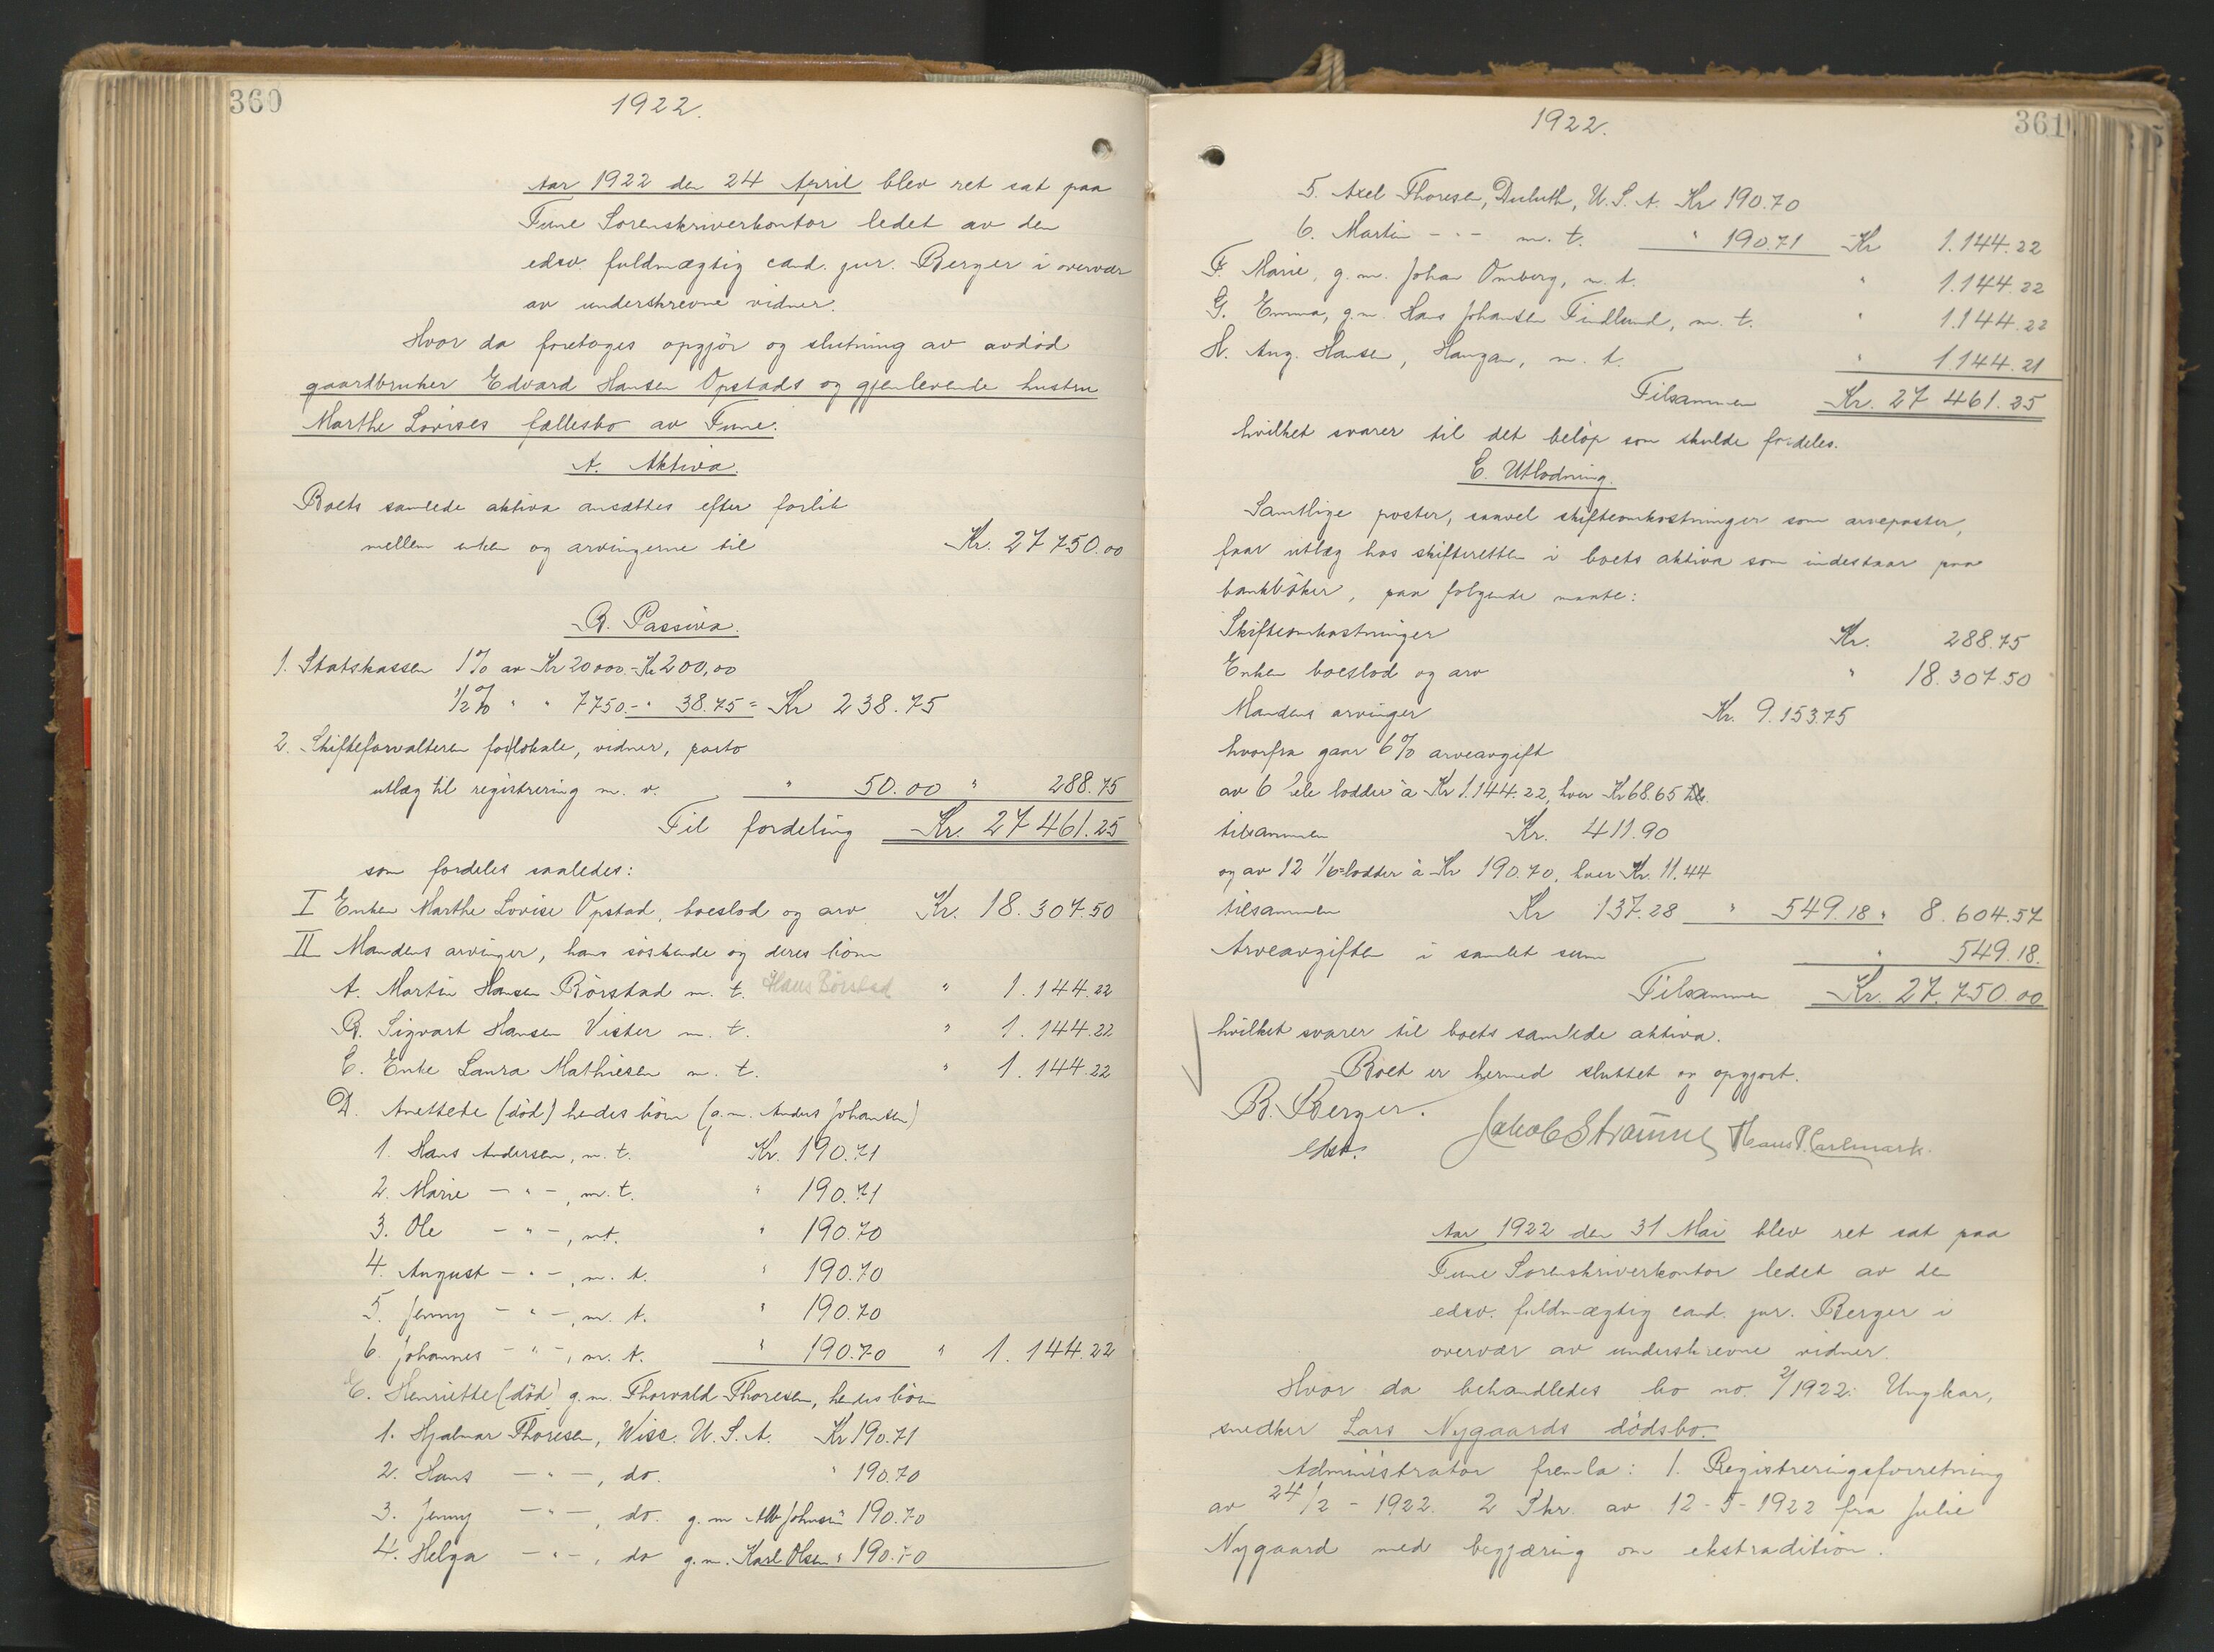 360
1922.
Aar 1922 den 24 April blev ret sat paa
Tune Sorenskriverkontor ledet av den
edsv. fuldmægtig cand. jur. Berger i overvær
av underskrevne vidner.
Hvor da foretoges opgjör og slutning av avdöd
gaardbruker Edvard Hansen Opstads og gjenlevende hustru
Marthe Lovises fællesbo av Tune.
A. Aktiva.
Boets samlede aktiva ansættes efter forlik
mellem enken og arvingerne til Kr. 27 750.00
B. Passiva.
1. Statskassen 1% av Kr 20000.- Kr 200,00
1/2% " " 7750.- " 38.75 = Kr 238.75
2. Skifteforvalteren for lokale, vidner, porto
utlæg til registrering m. v. " 50.00 " 288.75
Til fordeling Kr. 27 461.25
som fordeles saaledes:
I Enken Marthe Lovise Opstad, boeslod og arv Kr. 18.307.50
II Mandens arvinger, hans söskende og deres börn
A. Martin Hansen Börstad m. t. Hans Börstad " 1.144.22
B. Sigvart Hansen Vister m. t. " 1.144.22
C. Enke Laura Mathiesen m. t. " 1.144.22
D. Anettete (död) hendes börn (g.m. Anders Johansen)
1. Hans Andersen, m. t. Kr. 190.71
2. Marie - " -, m. t. " 190.71
3. Ole - " -, m.t. " 190.70
4. August - " -, m. t. " 190.70
5. Jenny - " -, m. t. " 190.70
6. Johannes - " -, m. t. " 190.70 " 1.144.22
E. Henriette (död) g.m. Thorvald Thoresen, hendes börn
1. Hjalmar Thoresen, Wisc. U.S.A. Kr 190.71
2. Hans - " -, do. " 190.70
3. Jenny - " -, do. g.m Alb Johnsen " 190.70
4. Helga - " -, do g.m. Karl Olsen " 190.70
361
1922.
5. Axel Thoresen, Duluth, U.S.A. Kr 190.70
6. Martin - " - m. t. " 190.71 Kr 1.144.22
F. Marie, g.m. Johan Omberg, m. t. " 1.144.22
G. Emma, g.m. Hans Johansen Tindlund, m. t. " 1.144.22
H. Aug. Hansen, Haugan, m. t. " 1.144.21
Tilsammen Kr. 27 461.25
hvilket svarer til det belöp som skulde fordeles.
C. Utlodning.
Samtlige poster, saavel skifteomkostninger som arveposter,
faar utlæg hos skifteretten i boets aktiva som indestaar paa
bankböker, paa fölgende maate:
Skifteomkostninger Kr. 288.75
Enken boeslod og arv " 18.307.50
Mandens arvinger Kr. 9.153.75
hvorfra gaar 6% arveavgift
av 6 hele lodder à Kr 1.144.22, hver Kr 68.65
tilsammen Kr. 411.90
og av 12 1/6-lodder à Kr 190.70, hver Kr. 11.44
tilsammen Kr 137.28 " 549.18 " 8.604.57
Arveavgiften i samlet sum " 549.18.
Tilsammen Kr. 27.750.00
hvilket svarer til boets samlede aktiva.
Boet er hermed sluttet og opgjort.
B. Berger.
edsv.
Jakob Strømnes Hans P. Carlmark.
Aar 1922 den 31 Mai blev ret sat paa
Tune Sorenskriverkontor ledet av den
edsv. fuldmægtig cand. jur. Berger i
overvær av underskrevne vidner.
Hvor da behandledes bo no. 2/1922: Ungkar,
snedker Lars Nygaards dödsbo.
Administrator fremla: 1. Registreringsforretning
av 24/2 - 1922. 2 Skr. av 12-5-1922 fra Julie
Nygaard med begjæring om ekstradition.